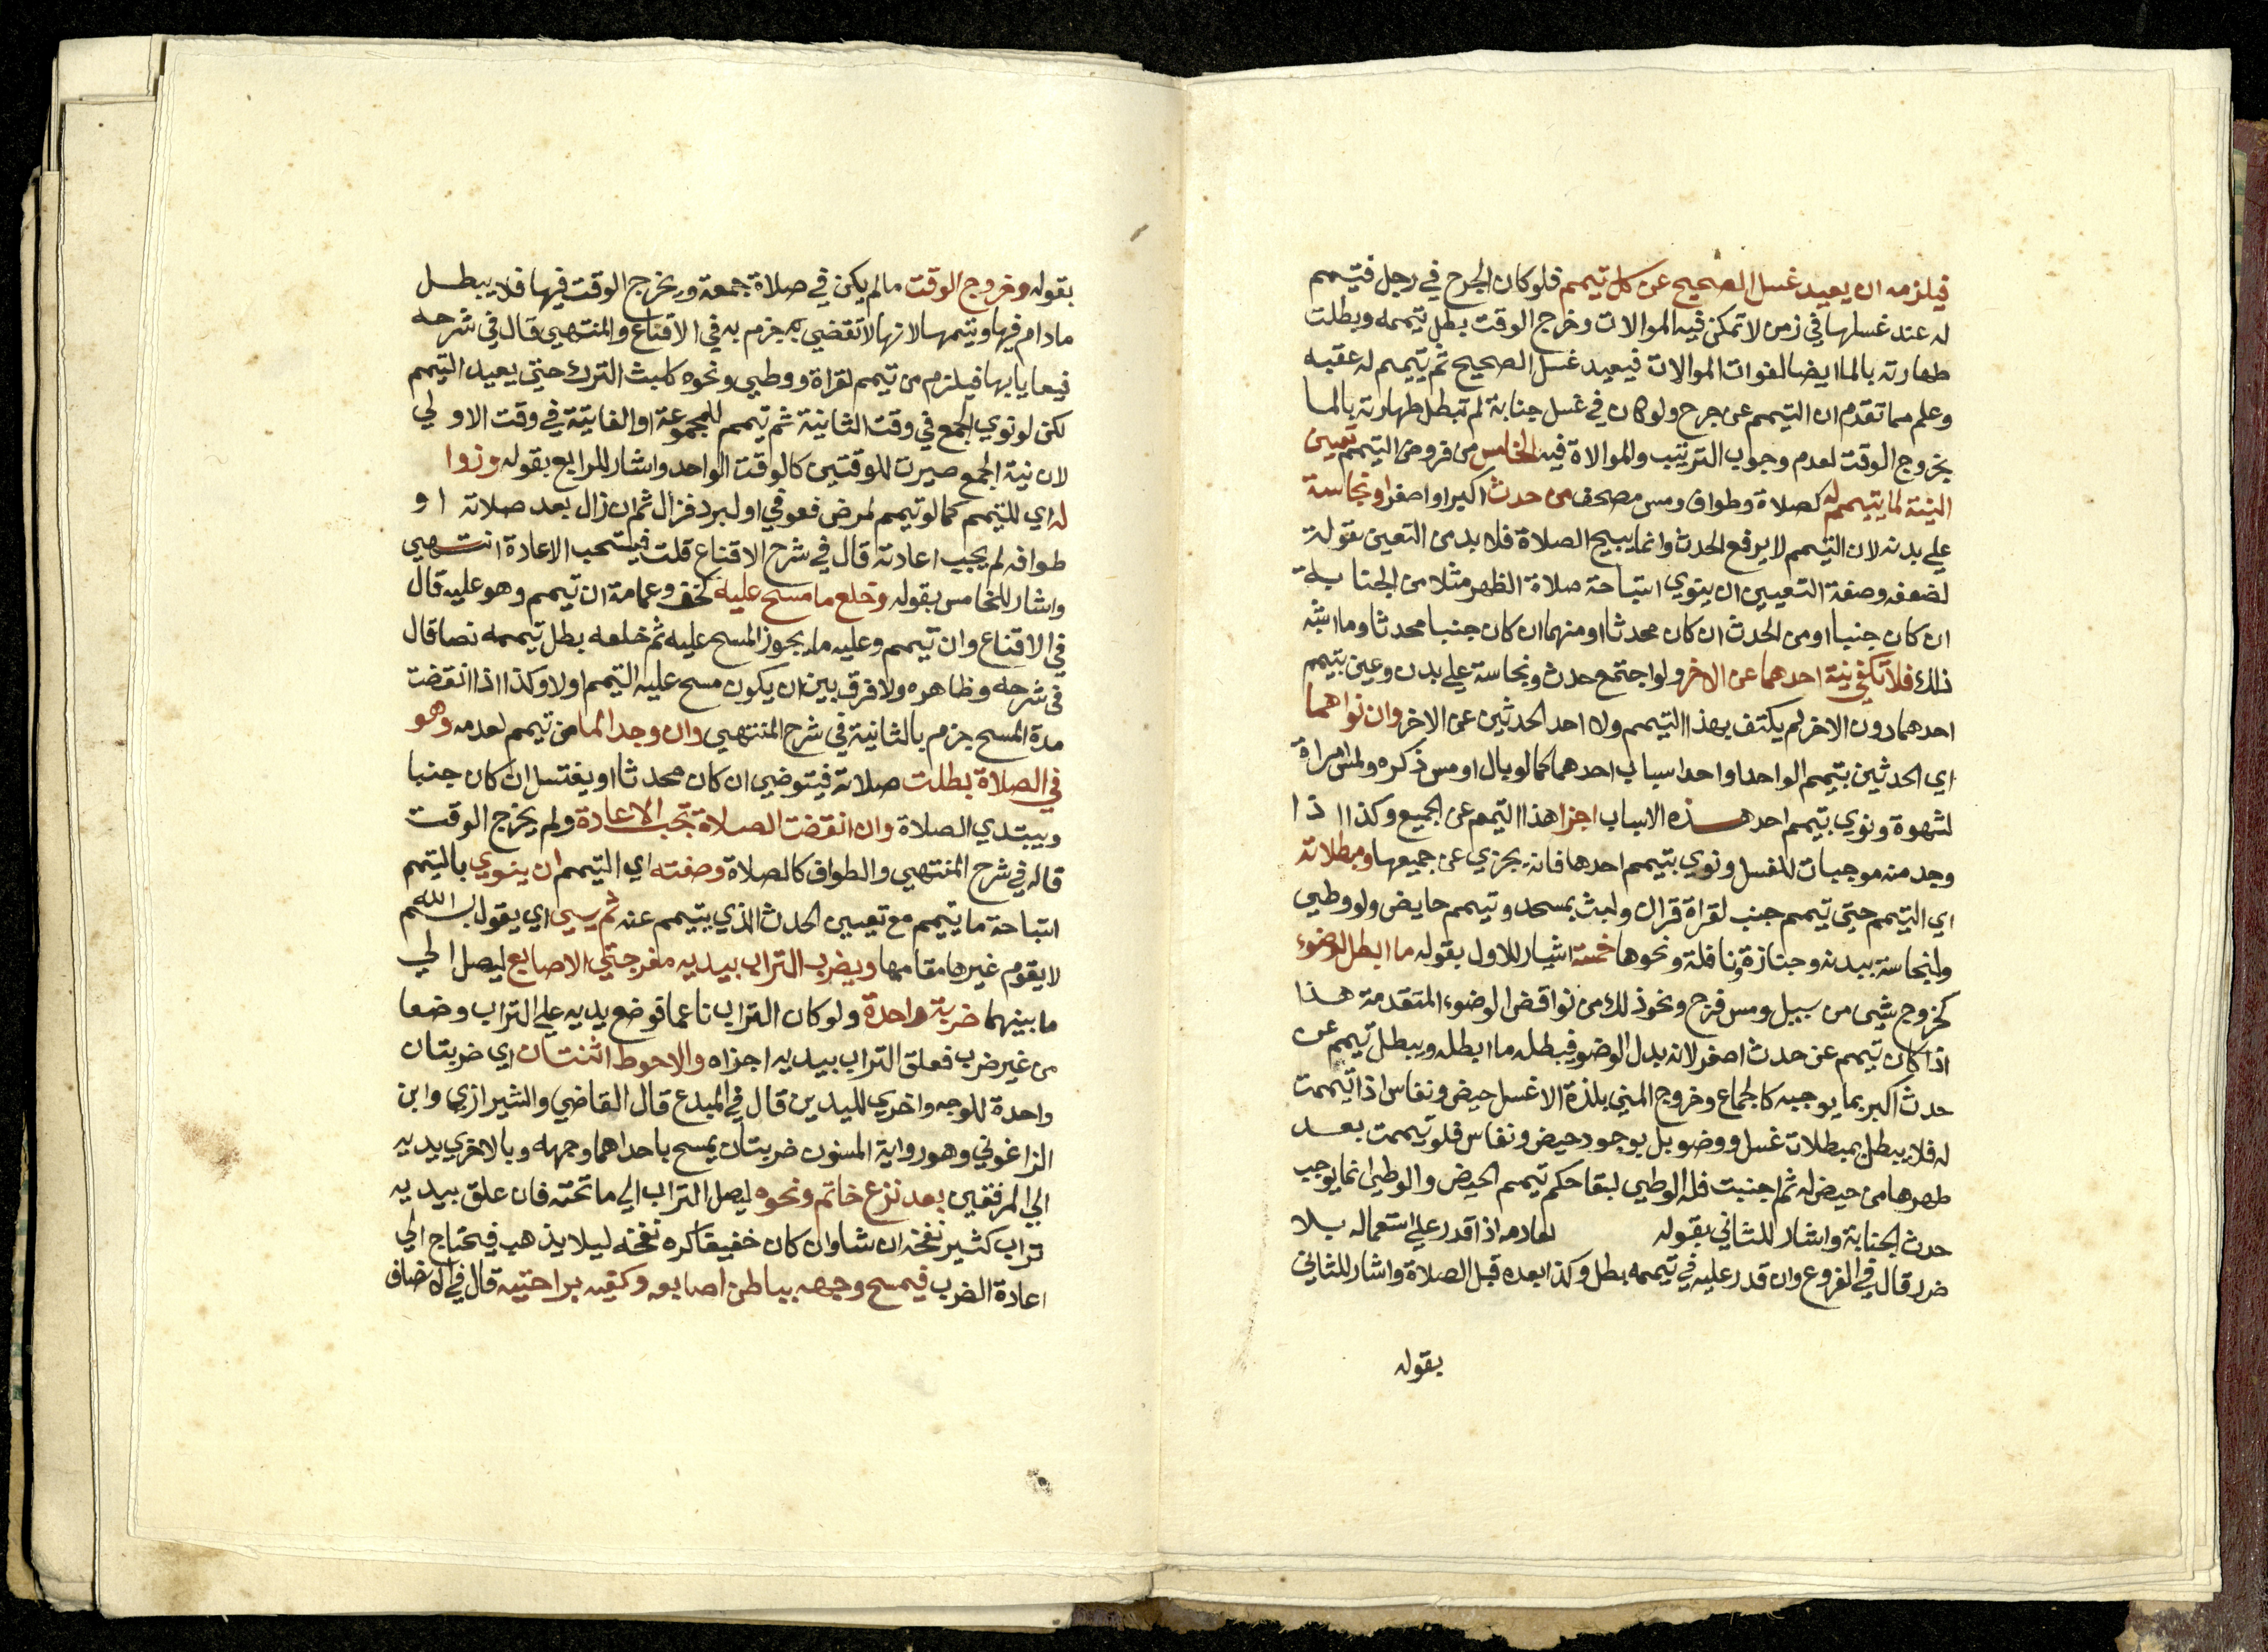 فيلزمه ان يعيد غسل الصحيح عن كل تيمم فلو كان الجرح في رجل فتيمم
له عند غسلها في زمن لا تمكن فيه الموالات وخرج الوقت بطل تيممه وبطلت
طهارته بالما ايضا لفوات الموالات فيعيد غسل الصحيح ثم يتيمم له عقبه
وعلم مما تقدم ان التيمم عن جرح ولو كان في غسل جنابة لم تبطل طهارته بالما
بخروج الوقت لعدم وجوب الترتيب والموالاة فيه الخامس من فروض التيمم تعيين
النية لما يتيمم له كصلاة وطواف ومس مصحف من حدث اكبر او اصغر او نجاسة
علي بدنه لان التيمم لا يرفع الحدث وانما يبيح الصلاة فلا بد من التعيين تقوية
لضعفه وصفة التعيين ان ينوي استباحة صلاة الظهر مثلا من الجنابة
ان كان جنبا او من الحدث ان كان محدثا او منهما ان كان جنبا محدثا وما اشبه
ذلك فلا تكفي نية احدهما عن الاخر ولو اجتمع حدث ونجاسة علي بدن وعين بتيمم
احدهما دون الاخر لم يكتف بهذا التيمم ولا احد الحدثين عن الاخر وان نواهما
اي الحدثين بتيمم الواحد او احد اسباب احدهما كما لو بال او مس ذكره ولمس امراة
لشهوة ونوي بتيمم احد هذه الاسباب اجزا هذا التيمم عن الجميع وكذا اذا
وجد منه موجبات للغسل ونوي بتيمم احدها فانه يجزي عن جميعها ومبطلاته
اي التيمم حتى تيمم جنب لقراة قران ولبث بمسجد وتيمم حايض ولو وطي
ولنجاسة ببدنه وجنازة ونافلة ونحوها خمسة اشار للاول بقوله ما ابطل الوضوء
كخروج شيى من سبيل ومس فرج ونحو ذلك من نواقض الوضوء المتقدمة هذا
اذا كان تيمم عن حدث اصغر لانه بدل الوضو فيبطله ما ابطله ويبطل تيمم عن
حدث اكبر بما يوجبه كالجماع وخروج المني بلذة الا غسل حيض ونفاس اذا تيممت
له فلا يبطل بمبطلات غسل ووضو بل بوجود حيض ونفاس فلو تيممت بعد
طهرها من حيض له ثم اجنبت فله الوطي لبقا حكم تيمم الحيض والوطي انما يوجب
حدث الجنابة واشار للثاني بقوله لعادمه اذا قدر علي استعماله بلا
ضرر قال في الفروع وان قدر عليه في تيممه بطل وكذا بعده قبل الصلاة واشار للثالث
بقوله
بقوله وخروج الوقت ما لم يكن في صلاة جمعة ويخرج الوقت فيها فلا يبطل
ما دام فيها ويتمها لانها لا تقضي به جزم به في الاقناع والمنتهي قال في شرحه
فيعايا بها فيلزم من تيمم لقراة ووطي ونحوه كلبث الترك حتي يعيد التيمم
لكن لو نوي الجمع في وقت الثانية ثم تيمم للمجموعة او الفايتة في وقت الاولي
لان نية الجمع صيرت للوقتين كالوقت الواحد واشار للرابع بقوله وزوا
له اي للتيمم كما لو تيمم لمرض فعوفي او لبرد فزال ثم ان زال بعد صلاته او
طوافه لم يجب اعادته قال في شرح الاقناع قلت فيستحب الاعادة انتهي
واشار للخامس بقوله وخلع ما مسح عليه كخف وعمامة ان تيمم وهو عليه قال
في الاقناع وان تيمم وعليه ما يجوز المسح عليه ثم خلعه بطل تيممه نصا قال
في شرحه وظاهره ولا فرق بين ان يكون مسح عليه التيمم اولا وكذا اذا انقضت
مدة المسح جزم بالثانية في شرح المنتهي وان وجد الما من تيمم لعدمه وهو
في الصلاة بطلت صلاته فيتوضي ان كان محدثا او يغتسل ان كان جنبا
ويبتدي الصلاة وان انقضت الصلاة تجب الاعادة ولم يخرج الوقت
قاله في شرح المنتهي والطواف كالصلاة وصفته اي التيمم ان ينوي بالتيمم
استباحة ما يتيمم مع تعيين الحدث الذي يتيمم عنه ثم يسمي اي يقول بسم الله
لا يقوم غيرها مقامها ويضرب التراب بيديه مفرجتي الاصابع ليصل الي
ما بينهما ضربة واحدة ولو كان التراب ناعما فوضع يديه علي التراب وضعا
من غير ضرب فعلق التراب بيديه اجزاه والاحوط اثنتان اي ضربتان
واحدة للوجه واخري لليدين قال في المبدع قال القاضي والشيرازي وابن
الزاغوني وهو رواية المسنون ضربتان يمسح باحداهما وجهه وبالاخري يديه
الي المرفقين بعد نزع خاتم ونحوه ليصل التراب الي ما تحته فان علق بيديه
تراب كثير نفخه ان شا وان كان خفيفا كره نفخه ليلا يذهب فيحتاج الي
اعادة الضرب فيمسح وجهه بباطن اصابعه وكفيه براحتيه قال في الانصاف